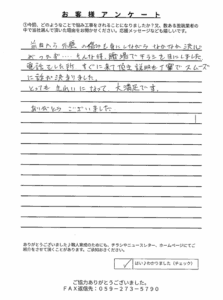 お 客 様 ア ン ケ ー ト
①今回、どのようなことで悩み工事をされることになりましたか？又、数ある産廃業者の
中で当社選んで頂いた理由をお聞かせください。応援メッセージなども嬉しいです。
前日から外壁の傷みも気にしながらなかなか決心
がつかず…そんな時、職場でチラシを目にしました
電話をした所、すぐに来て頂き説明も丁寧でスムーズ
に話が決まりました。
とても きれいになって 大満足です。
ありがとう ございました
ありがとうございました♪個人宛のためにも、チラシやニュースレター、ホームページにてご
紹介をさせて頂くことがあります。ご承知おきください。
✓ はい♪わかりました（チェック）
ご協力ありがとうございました。
ＦＡＸ返信先：０５９－２７３－５７９０